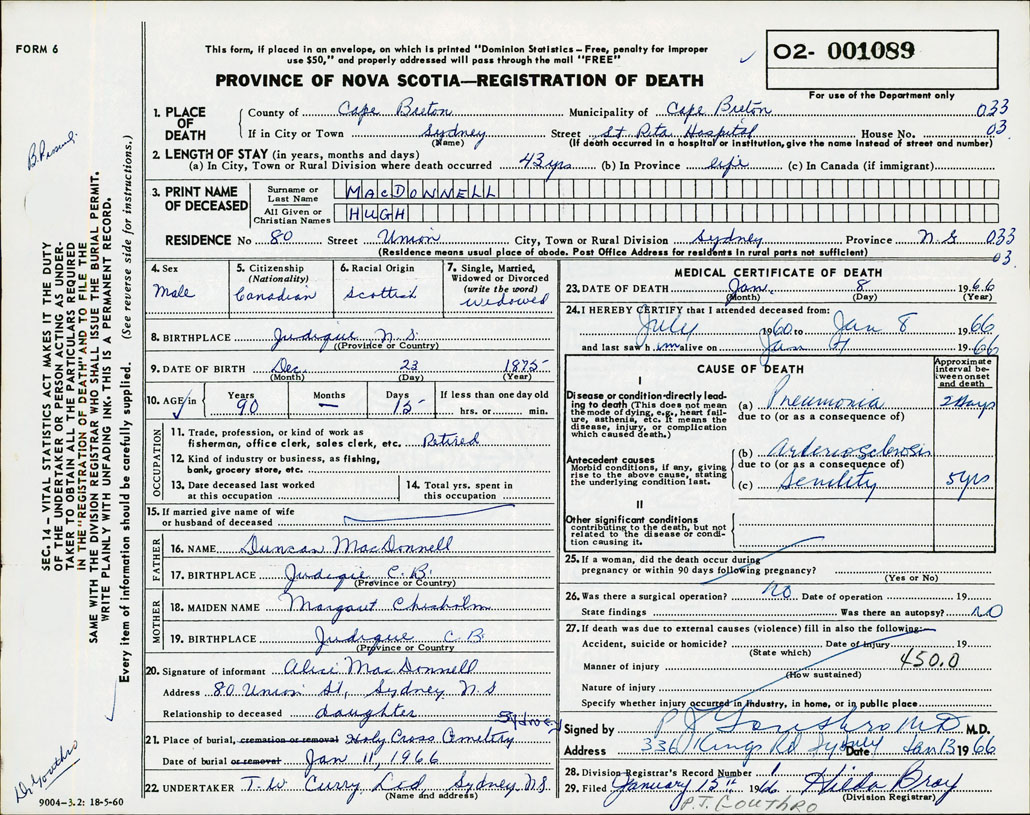 FORM 6
This form, if placed in an envelope, on which is printed "Dominion Statistics – Free, penalty for improper
use $50," and properly addressed will pass through the mail "FREE"
O2- 001089
PROVINCE OF NOVA SCOTIA—REGISTRATION OF DEATH
For use of the Department only
1. PLACE OF DEATH
County of Cape Breton Municipality of Cape Breton 033
If in City or Town Sydney Street St Rita Hospital House No. 03
(Name) (If death occurred in a hospital or institution, give the name instead of street and number)
2. LENGTH OF STAY (in years, months and days)
(a) In City, Town or Rural Division where death occurred 43 yrs (b) In Province life (c) In Canada (if immigrant)
3. PRINT NAME OF DECEASED
Surname or Last Name MACDONNELL
All Given or Christian Names HUGH
RESIDENCE No 80 Street Union City, Town or Rural Division Sydney Province N.S 033
(Residence means usual place of abode. Post Office Address for residents in rural parts not sufficient) 03.
4. Sex
Male
5. Citizenship
(Nationality)
Canadian
6. Racial Origin
Scottish
7. Single, Married,
Widowed or Divorced
(write the word)
widowed
8. BIRTHPLACE Judique N.S.
(Province or Country)
9. DATE OF BIRTH Dec. 23 1875
(Month) (Day) (Year)
10. AGE in Years Months Days If less than one day old
90 — 15 hrs. or min.
OCCUPATION
11. Trade, profession, or kind of work as
fisherman, office clerk, sales clerk, etc. Retired
12. Kind of industry or business, as fishing,
bank, grocery store, etc.
13. Date deceased last worked
at this occupation
14. Total yrs. spent in
this occupation
15. If married give name of wife
or husband of deceased
FATHER
16. NAME Duncan MacDonnell
17. BIRTHPLACE Judigie C.B.
(Province or Country)
MOTHER
18. MAIDEN NAME Margaret Chisholm
19. BIRTHPLACE Judique C.B.
(Province or Country)
20. Signature of informant Alice MacDonnell
Address 80 Union St, Sydney N.S
Relationship to deceased daughter
21. Place of burial, cremation or removal Holy Cross Cemetry Sydney
Date of burial or removal Jan 11, 1966
22. UNDERTAKER T. W Curry Ltd, Sydney N.S.
(Name and address)
MEDICAL CERTIFICATE OF DEATH
23. DATE OF DEATH Jan. 8 1966
(Month) (Day) (Year)
24. I HEREBY CERTIFY that I attended deceased from:
July 1960 to Jan 8 1966
and last saw him alive on Jan 1966
CAUSE OF DEATH
Approximate interval between onset and death
I
Disease or condition directly leading
to death (This does not mean
the mode of dying, e.g., heart failure,
asthenia, etc. It means the
disease, injury, or complication
which caused death.)
(a) Pneumonia 2 Days
due to (or as a consequence of)
Antecedent causes
Morbid conditions, if any, giving
rise to the above cause, stating
the underlying condition last.
(b) Arteriosclerosis
due to (or as a consequence of)
(c) Senility 5 yrs
II
Other significant conditions
contributing to the death, but not
related to the disease or condition
causing it.
25. If a woman, did the death occur during
pregnancy or within 90 days following pregnancy?
(Yes or No)
26. Was there a surgical operation? no Date of operation 19
State findings Was there an autopsy? NO
27. If death was due to external causes (violence) fill in also the following:
Accident, suicide or homicide? Date of injury 19
(State which) 450.0
Manner of injury
(How sustained)
Nature of injury
Specify whether injury occurred in industry, in home, or in public place
Signed by P J Gouthro MD M.D.
Address 336 Kings Rd Sydney Date Jan 13 1966
28. Division Registrar's Record Number 1
29. Filed January 15th 1966 Hilda Bray
(Division Registrar)
P.J. GOUTHRO
SEC. 14 – VITAL STATISTICS ACT MAKES IT THE DUTY
OF THE UNDERTAKER OR PERSON ACTING AS UNDER-
TAKER TO OBTAIN ALL THE PARTICULARS REQUIRED
IN THE "REGISTRATION OF DEATH" AND TO FILE THE
SAME WITH THE DIVISION REGISTRAR WHO SHALL ISSUE THE BURIAL PERMIT.
WRITE PLAINLY WITH UNFADING INK. THIS IS A PERMANENT RECORD.
Every item of information should be carefully supplied. (See reverse side for instructions.)
Dr Gouthro
9004–3.2: 18-5-60